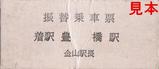 見本
振替乗車票
着駅豊橋駅
金山駅長